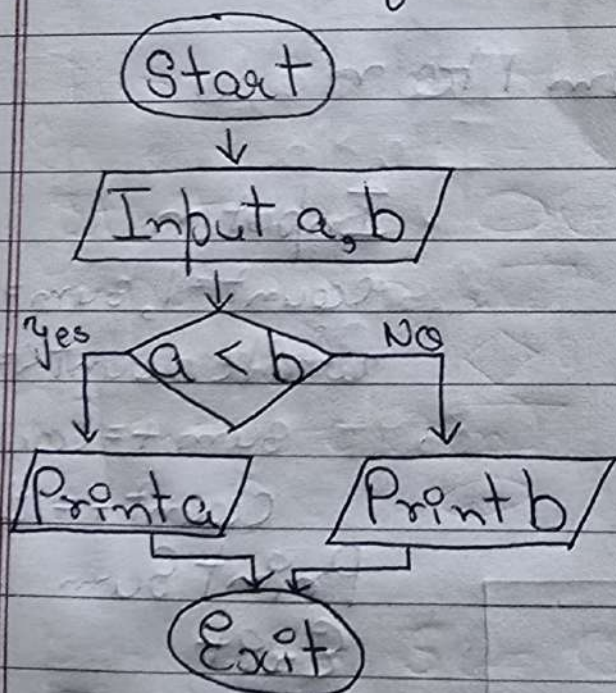 Start
Input a, b
Yes
No
a < b
Print a
Print b
Exit